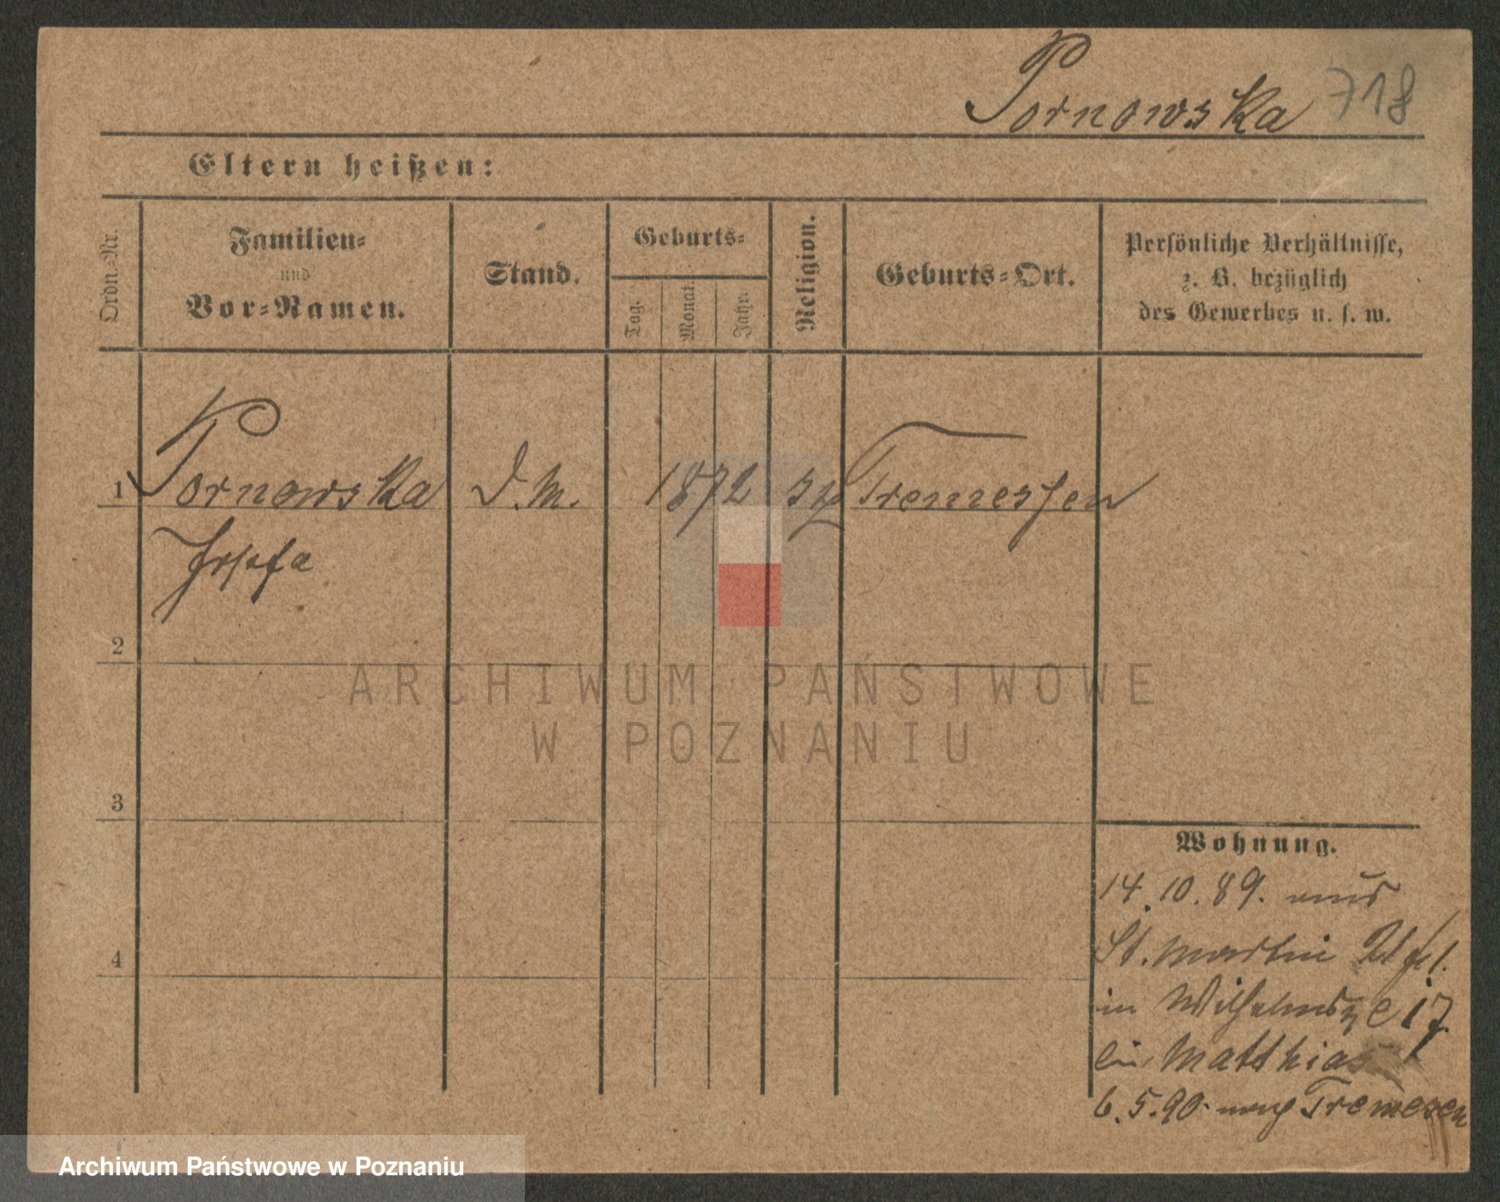 Pornowska 718
Eltern heißen:
Ordn.-Nr.
Familien-
und
Vor-Namen.
Stand.
Geburts-
Tag.
Monat.
Jahr.
Religion.
Geburts-Ort.
Persönliche Verhältnisse,
z. B. bezüglich
des Gewerbes u. s. w.
1 Pornowska D. M. 1872 Tremessen
Josefa
2
3
4
Wohnung.
14.10.89. aus
St. Martin
in Wilhelmspl 17
bei Matthias
6.5.90. nach Tremessen
ARCHIWUM PAŃSTWOWE
W POZNANIU
Archiwum Państwowe w Poznaniu